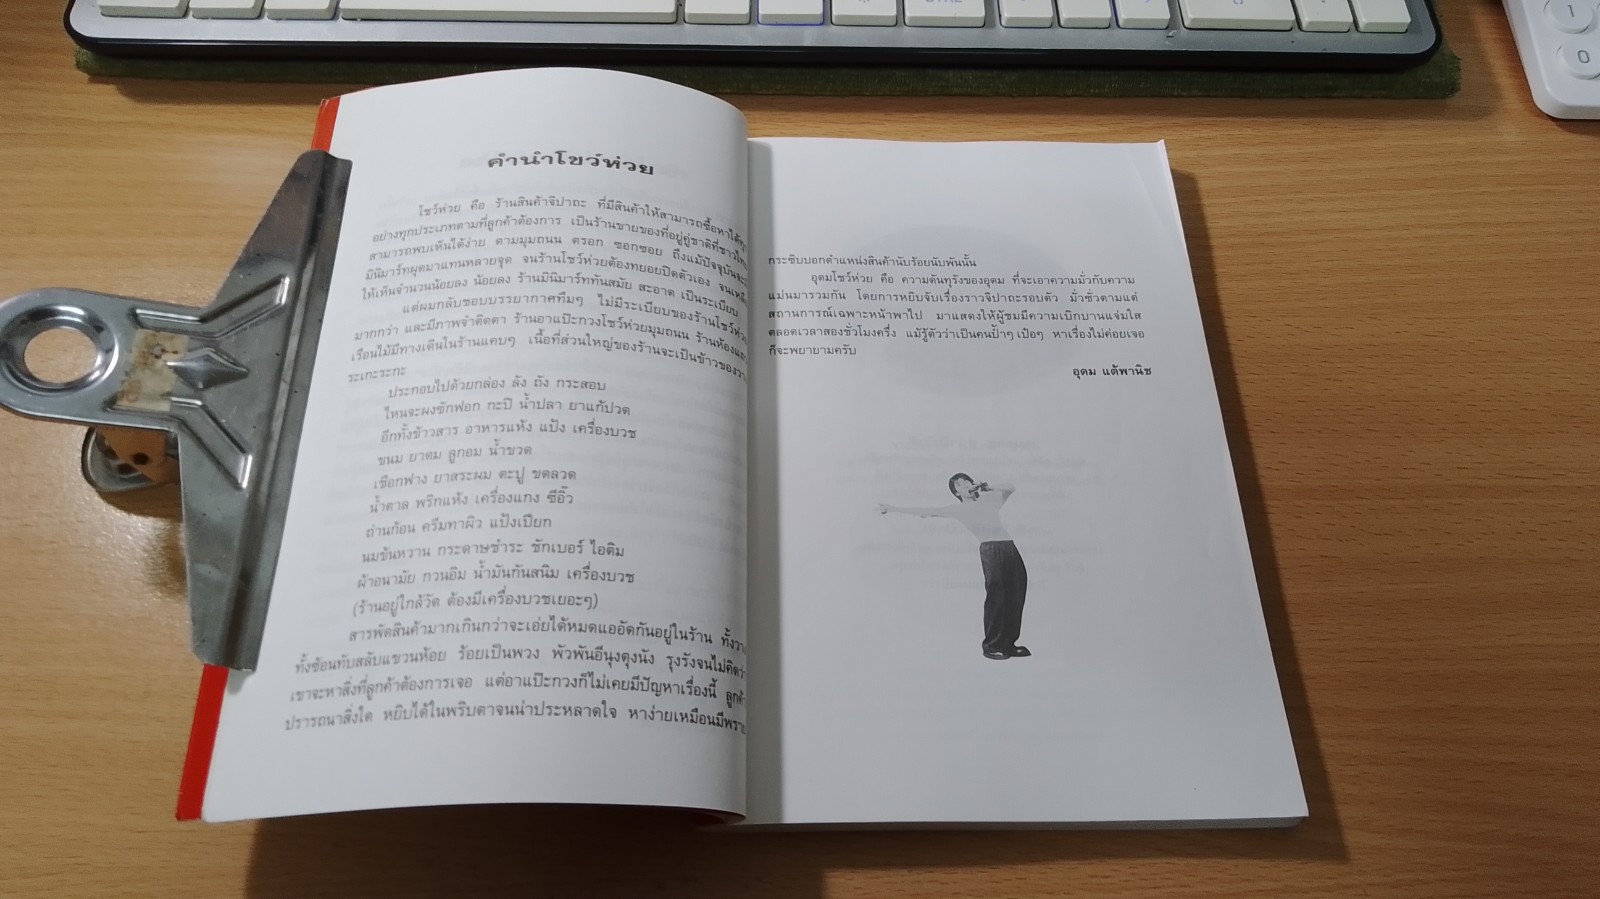 คำนำโชว์ห่วย
โชว์ห่วย คือ ร้านสินค้าจิปาถะ ที่มีสินค้าให้สามารถซื้อหาได้ทุก
อย่างทุกประเภทตามที่ลูกค้าต้องการ เป็นร้านขายของที่อยู่คู่ชาติที่ชาวไทย
สามารถพบเห็นได้ง่าย ตามมุมถนน ตรอก ซอกซอย ถึงแม้ปัจจุบันจะมี
มินิมาร์ทผุดมาแทนหลายจุด จนร้านโชว์ห่วยต้องทยอยปิดตัวเอง จนเหลือ
ให้เห็นจำนวนน้อยลง น้อยลง ร้านมินิมาร์ททันสมัย สะอาด เป็นระเบียบ
แต่ผมกลับชอบบรรยากาศทึมๆ ไม่มีระเบียบของร้านโชว์ห่วย
มากกว่า และมีภาพจำติดตา ร้านอาแป๊ะกวงโชว์ห่วยมุมถนน ร้านห้องแถว
เรือนไม้มีทางเดินในร้านแคบๆ เนื้อที่ส่วนใหญ่ของร้านจะเป็นข้าวของวาง
ระเกะระกะ
ประกอบไปด้วยกล่อง ลัง ถัง กระสอบ
ไหนจะผงซักฟอก กะปิ น้ำปลา ยาแก้ปวด
อีกทั้งข้าวสาร อาหารแห้ง แป้ง เครื่องบวช
ขนม ยาดม ลูกอม น้ำขวด
เชือกฟาง ยาสระผม ตะปู ขดลวด
น้ำตาล พริกแห้ง เครื่องแกง ซีอิ๊ว
ถ่านก้อน ครีมทาผิว แป้งเปียก
นมข้นหวาน กระดาษชำระ ชักเบอร์ ไอติม
ผ้าอนามัย กวนอิม น้ำมันกันสนิม เครื่องบวช
(ร้านอยู่ใกล้วัด ต้องมีเครื่องบวชเยอะๆ)
สารพัดสินค้ามากเกินกว่าจะเอ่ยได้หมดแออัดกันอยู่ในร้าน ทั้งวาง
ทั้งซ้อนทับสลับแขวนห้อย ร้อยเป็นพวง พัวพันอีนุงตุงนัง รุงรังจนไม่คิดว่า
เขาจะหาสิ่งที่ลูกค้าต้องการเจอ แต่อาแป๊ะกวงก็ไม่เคยมีปัญหาเรื่องนี้ ลูกค้า
ปรารถนาสิ่งใด หยิบได้ในพริบตาจนน่าประหลาดใจ หาง่ายเหมือนมีพราย
กระซิบบอกตำแหน่งสินค้านับร้อยนับพันนั้น
อุดมโชว์ห่วย คือ ความดันทุรังของอุดม ที่จะเอาความมั่วกับความ
แม่นมารวมกัน โดยการหยิบจับเรื่องราวจิปาถะรอบตัว มั่วซั่วตามแต่
สถานการณ์เฉพาะหน้าพาไป มาแสดงให้ผู้ชมมีความเบิกบานแจ่มใส
ตลอดเวลาสองชั่วโมงครึ่ง แม้รู้ตัวว่าเป็นคนป้ำๆ เป๋อๆ หาเรื่องไม่ค่อยเจอ
ก็จะพยายามครับ
อุดม แต้พานิช